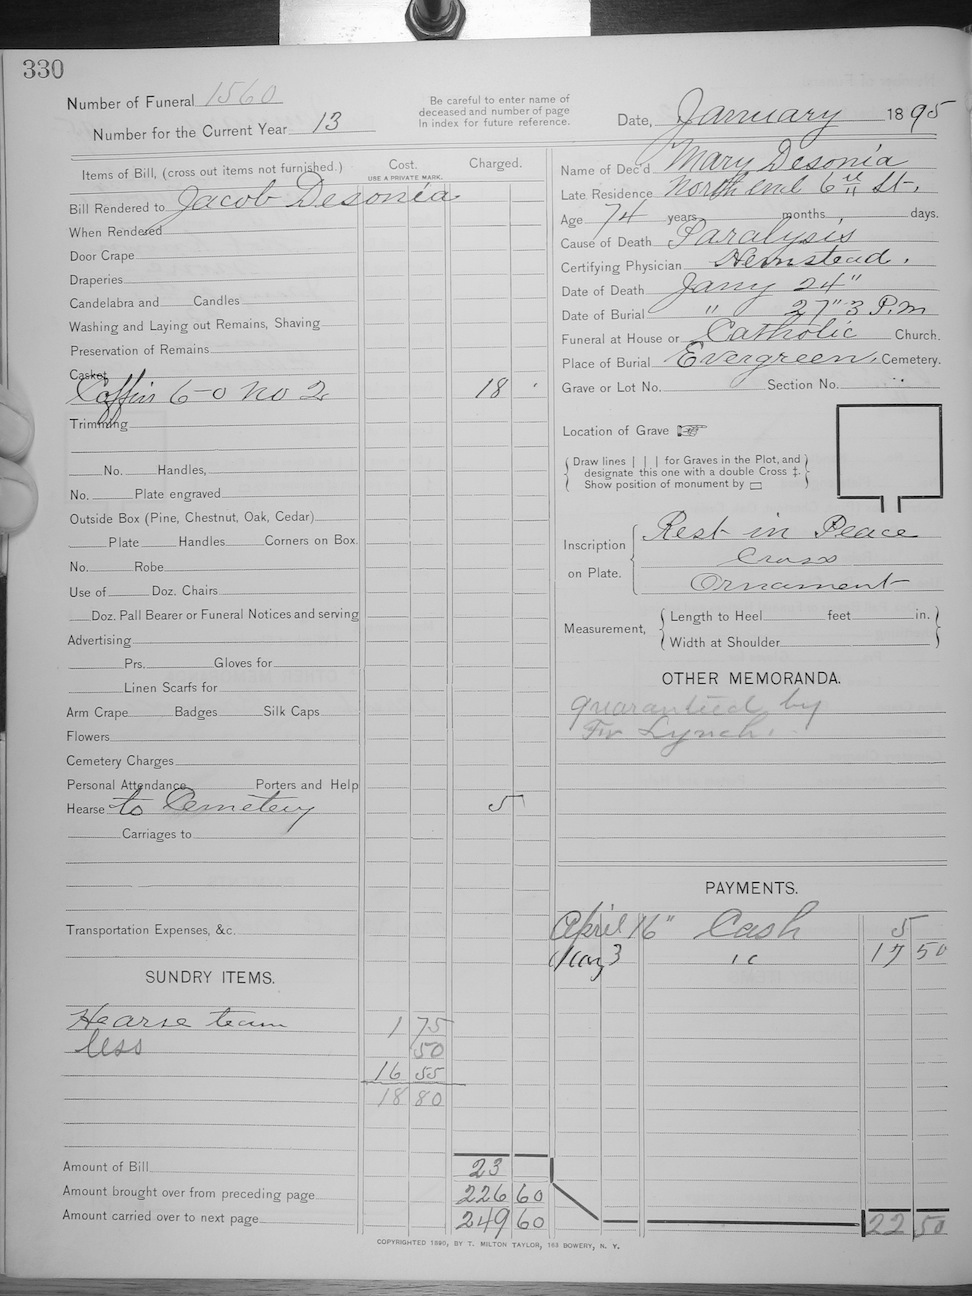 330
Number of Funeral 1560
Number for the Current Year 13
Be careful to enter name of
deceased and number of page
In index for future reference.
Date, January 1895
Items of Bill, (cross out items not furnished.) Cost. Charged.
USE A PRIVATE MARK.
Bill Rendered to Jacob Desonia
When Rendered
Door Crape
Draperies
Candelabra and Candles
Washing and Laying out Remains, Shaving
Preservation of Remains
Casket
Coffin 6-0 No 2 18
Trimming
No. Handles,
No. Plate engraved
Outside Box (Pine, Chestnut, Oak, Cedar)
Plate Handles Corners on Box.
No. Robe
Use of Doz. Chairs
Doz. Pall Bearer or Funeral Notices and serving
Advertising
Prs. Gloves for
Linen Scarfs for
Arm Crape Badges Silk Caps
Flowers
Cemetery Charges
Personal Attendance Porters and Help
Hearse to Cemetery 5
Carriages to
Transportation Expenses, &c.
SUNDRY ITEMS.
Hearse team 1 75
less 50
16 55
18 80
Amount of Bill 23
Amount brought over from preceding page 226 60
Amount carried over to next page 249 60
Name of Dec'd Mary Desonia
Late Residence North end 6 St.
Age 74 years months days.
Cause of Death Paralysis
Certifying Physician Hemstead.
Date of Death Jany 24"
Date of Burial " 27" 3 P.M
Funeral at House or Catholic Church.
Place of Burial Evergreen. Cemetery.
Grave or Lot No. Section No.
Location of Grave ☞
Draw lines | | | for Graves in the Plot, and
designate this one with a double Cross ‡.
Show position of monument by ▭
Inscription on Plate. Rest in Peace
Cross
Ornament
Measurement, Length to Heel feet in.
Width at Shoulder
OTHER MEMORANDA.
guarantied by
Lynch.
PAYMENTS.
April 16" Cash 5
May 3 " 17 50
22 50
COPYRIGHTED 1890, BY T. MILTON TAYLOR, 163 BOWERY, N. Y.